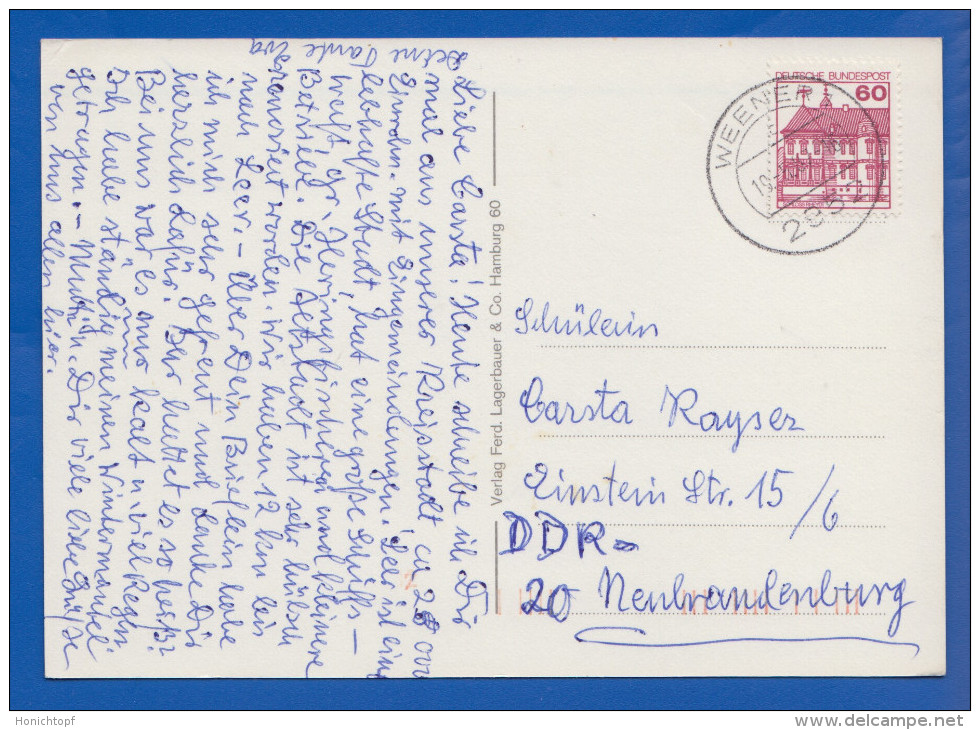 Liebe Carsta! Heute schreibe ich Dir
mal aus unserer Kreisstadt ca 28000
Einwohn. mit Eingemeindungen. Leer ist eine
lebhafte Stadt, hat eine große Schiffs-
werft, gr. Heringsfischerei und kleinere
Betriebe. Die Altstadt ist sehr hübsch
renoviert worden. Wir haben 12 km bis
nach Leer. - Über Dein Brieflein habe
ich mich sehr gefreut und danke Dir
herzlich dafür. Ihr hattet es so heiß?
Bei uns war es nur kalt u. viel Regen
Ich habe ständig meinen Wintermantel
getragen. - Mutti u. Dir viele liebe Grüße
von uns allen hier.
Deine Tante Eva
Verlag Ferd. Lagerbauer & Co. Hamburg 60
DEUTSCHE BUNDESPOST
60
WEENER
2952
Schülerin
Carsta Kayser
Einstein Str. 15/6
DDR-
20 Neubrandenburg
Honichtopf
www.delcampe.net